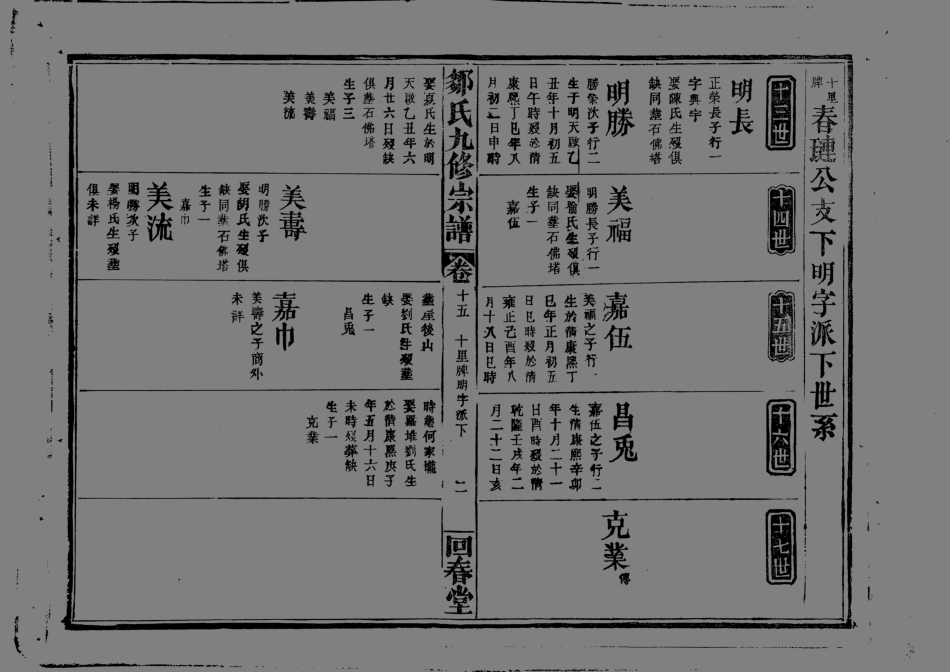 十里牌
春璉公支下明字派下世系
十三世
明長
正榮長子行一
字典字
娶陳氏生歿俱
缺同塟石佛塔
明勝
勝榮次子行二
生于明天啟乙
丑年十月初五
日午時歿於清
康熙丁巳年八
月初二日申時
娶夏氏生於明
天啟乙丑年六
月廿六日歿缺
俱塟石佛塔
生子三
美福
美壽
美流
十四世
美福
明勝長子行一
娶喻氏生歿俱
缺同塟石佛塔
生子一
嘉伍
美壽
明勝次子
娶胡氏生歿俱
缺同塟石佛塔
生子一
嘉巾
美流
明勝次子
娶楊氏生歿塟
俱未詳
十五世
嘉伍
美福之子行一
生於清康熙丁
巳年正月初五
日巳時歿於清
雍正己酉年八
月十八日巳時
塟屋後山
娶劉氏生歿塟
缺
生子一
昌兎
嘉巾
美壽之子商外
未詳
十六世
昌兎
嘉伍之子行二
生清康熙辛卯
年十月二十一
日酉時歿於清
乾隆壬戌年二
月二十二日亥
時塟何家壠
娶羅堆劉氏生
於清康熙庚子
年五月十六日
未時歿葬缺
生子一
克業
十七世
克業
傳
鄒氏九修宗譜
卷
十五 十里牌明字派下
二
回春堂